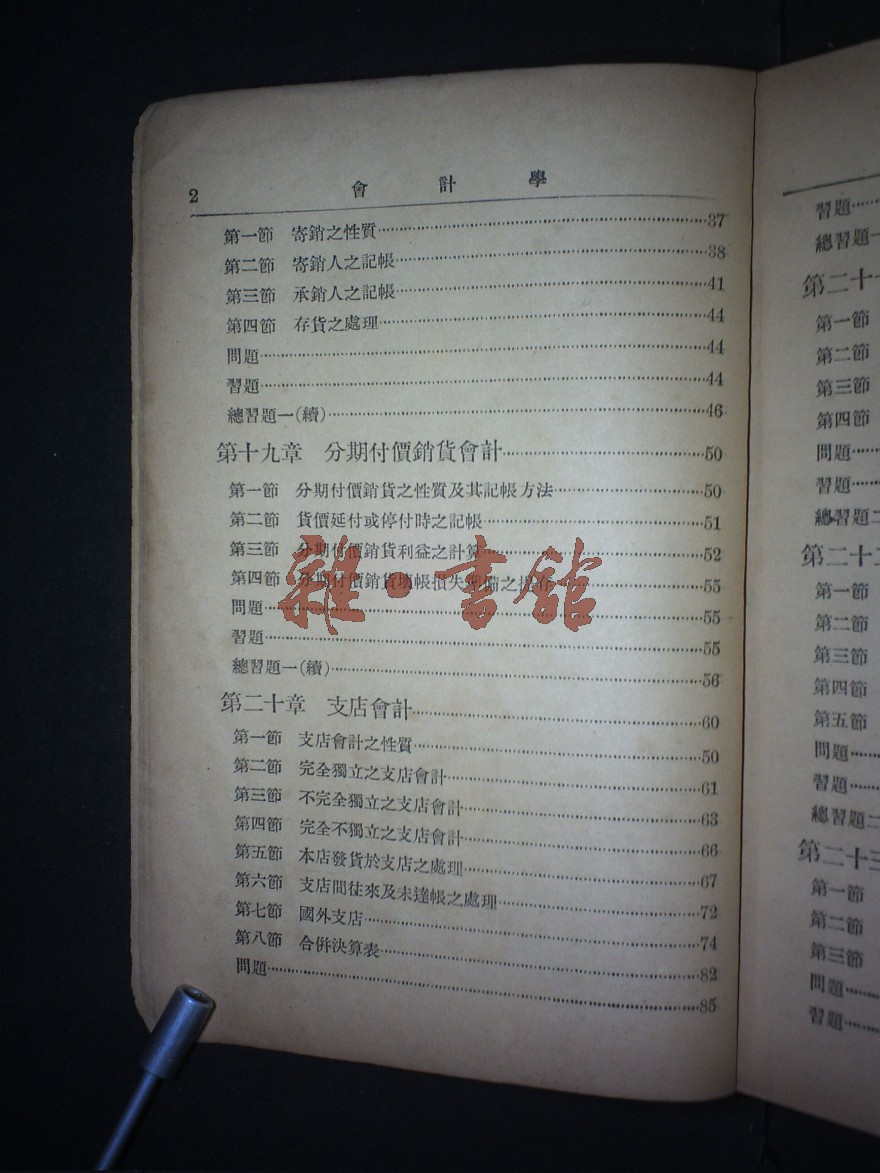 2 會計學
第一節 寄銷之性質……37
第二節 寄銷人之記帳……38
第三節 承銷人之記帳……41
第四節 存貨之處理……44
問題……44
習題……44
總習題一(續)……46
第十九章 分期付價銷貨會計……50
第一節 分期付價銷貨之性質及其記帳方法……50
第二節 貨價延付或停付時之記帳……51
第三節 分期付價銷貨利益之計算……52
第四節 分期付價銷貨壞帳損失準備之提存……55
問題……55
習題……55
總習題一(續)……56
第二十章 支店會計……60
第一節 支店會計之性質……50
第二節 完全獨立之支店會計……61
第三節 不完全獨立之支店會計……63
第四節 完全不獨立之支店會計……66
第五節 本店發貨於支店之處理……67
第六節 支店間往來及未達帳之處理……72
第七節 國外支店……74
第八節 合併決算表……82
問題……85
雜·書館
習題……
總習題一
第二十
第一節
第二節
第三節
第四節
問題……
習題……
總習題二
第二十二
第一節
第二節
第三節
第四節
第五節
問題……
習題……
總習題二
第二十三
第一節
第二節
第三節
問題……
習題……